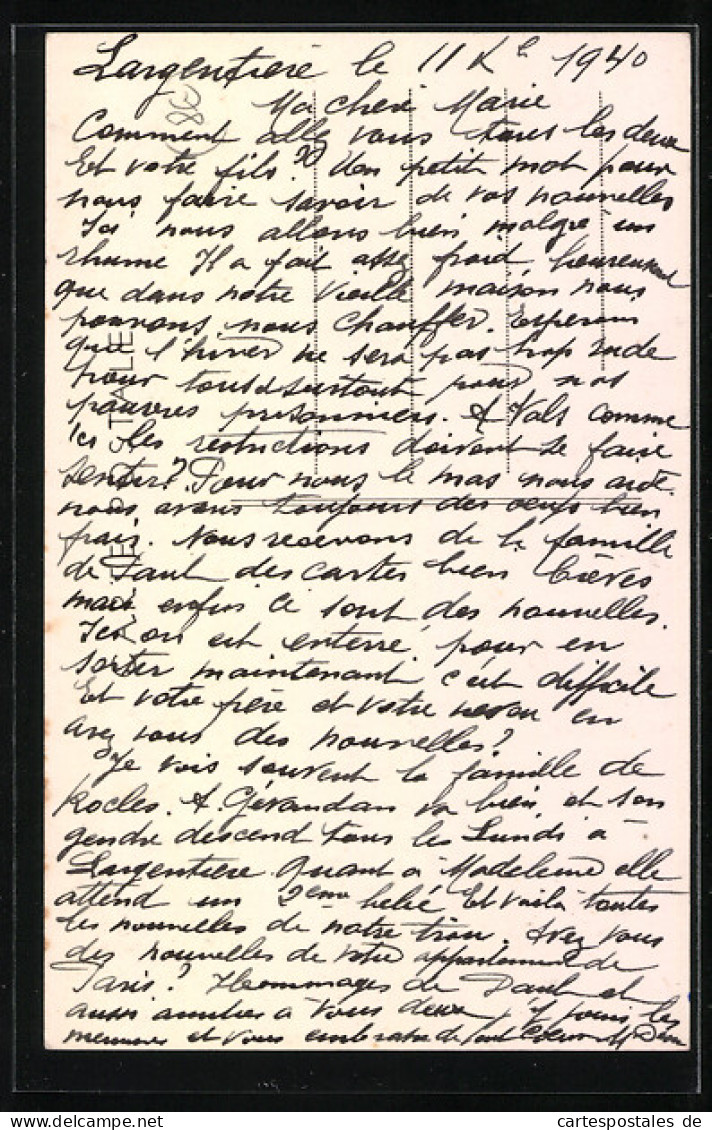 Largentière le 11 Xbe 1940
Ma chère Marie
Comment allez vous tous les deux
Et votre fils? Un petit mot pour
nous faire savoir de vos nouvelles
Ici nous allons bien malgré un
rhume Il a fait assez froid heureusement
que dans notre Vieille maison nous
pouvons nous chauffer. Esperons
que l'hiver ne sera pas trop rude
pour tous surtout pour nos
pauvres prisonniers. A Vals comme
ici les restrictions doivent se faire
sentir? Pour nous le mas nous aide
nous avons toujours des oeufs bien
frais. Nous recevons de la famille
de Paul des cartes bien brèves
mais enfin ce sont des nouvelles.
Ici on est enterré pour en
sortir maintenant c'est difficile
Et votre frère et votre neveu en
avez vous des nouvelles?
Je vois souvent la famille de
Rocles. A. Gévaudan va bien et son
gendre descend tous les Lundi à
Largentiere Quant à Madeleine elle
attend un 2eme bébé Et voilà toutes
les nouvelles de notre trou. Avez vous
des nouvelles de votre appartement de
Paris? Hommages de Paul et
aussi amitiés à vous deux, j'y joins les
miennes et vous embrasse de tout coeur
CARTE POSTALE
cartespostales de